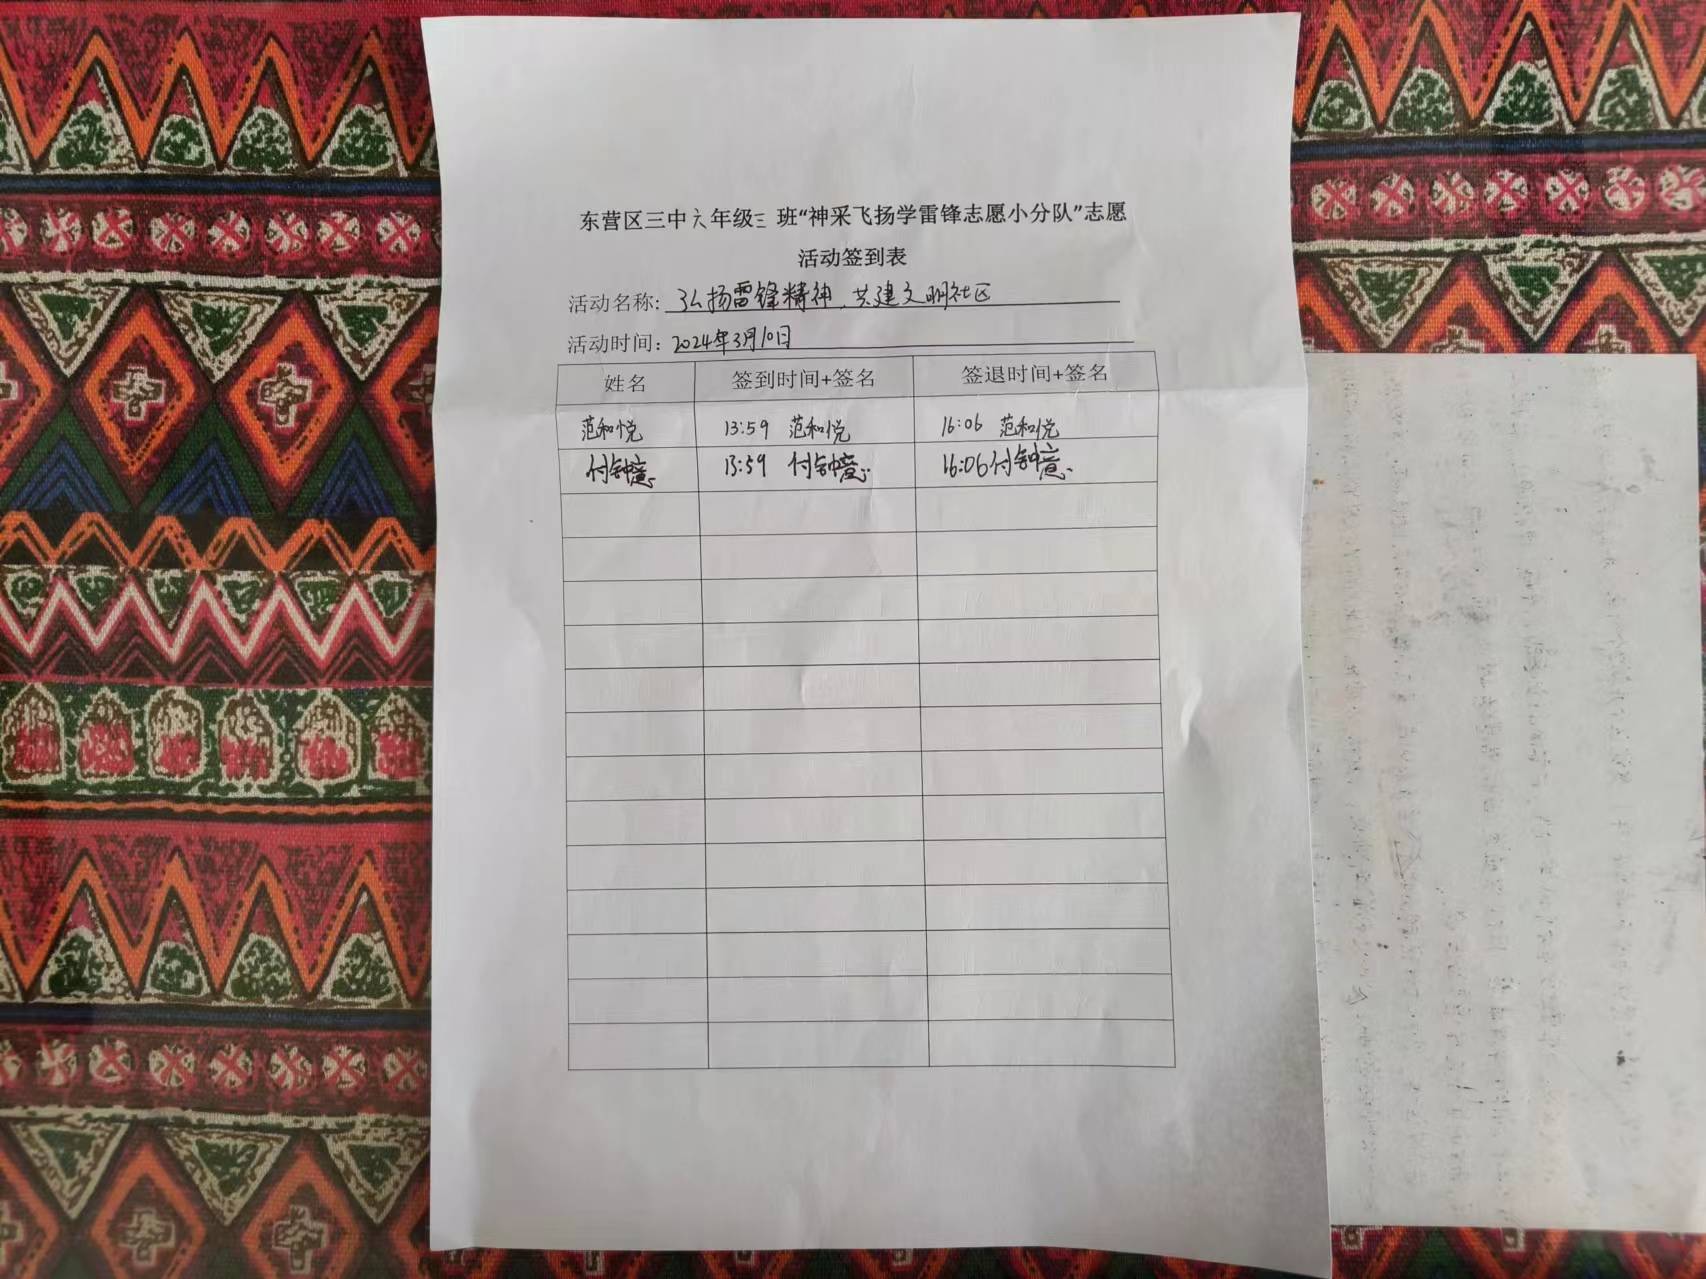 东营区三中六年级三 班“神采飞扬学雷锋志愿小分队”志愿
活动签到表
活动名称: 弘扬雷锋精神，共建文明社区
活动时间: 2024年3月10日
姓名 签到时间+签名 签退时间+签名
范和悦 13:59 范和悦 16:06 范和悦
付钟意 13:59 付钟意 16:06 付钟意